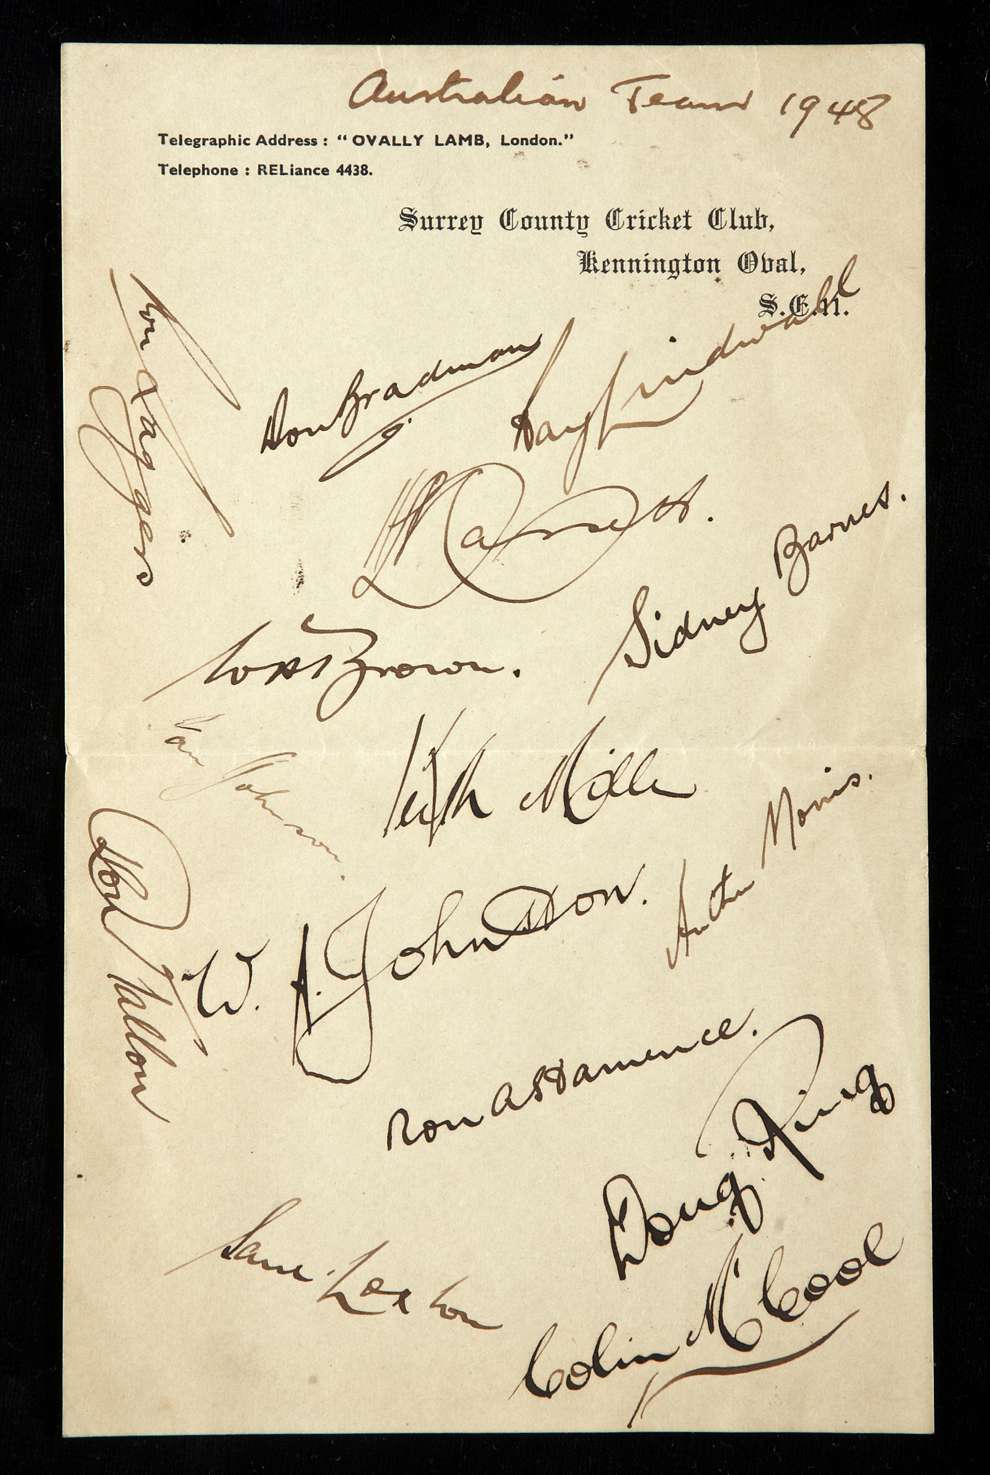 Australian Team 1948
Telegraphic Address : "OVALLY LAMB, London."
Telephone : RELiance 4438.
Surrey County Cricket Club,
Kennington Oval,
S.E.11.
Ron Saggers
Don Bradman
Ray Lindwall
Sidney Barnes.
W A Brown.
Ian Johnson.
Keith Miller
Arthur Morris.
Don Tallon
W. A. Johnston.
Ron A Hamence.
Doug Ring
Sam Loxton
Colin McCool